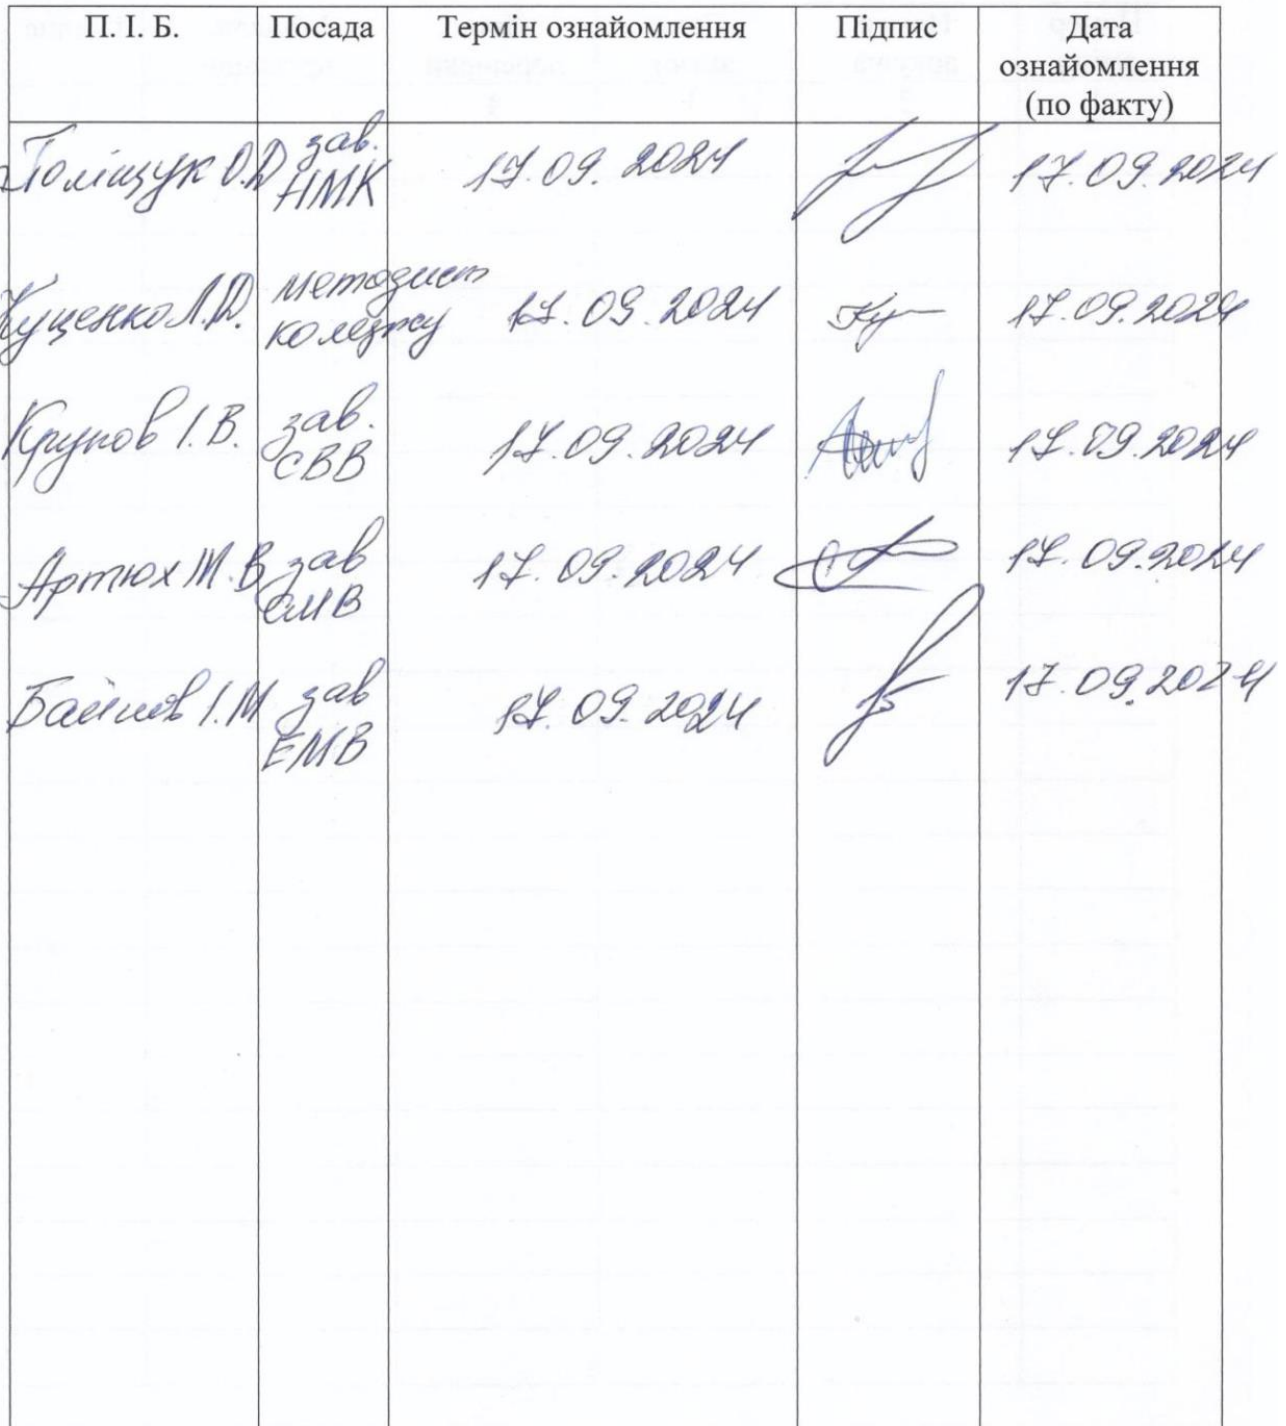 П. І. Б. Посада Термін ознайомлення Підпис Дата
ознайомлення
(по факту)
Поліщук О.Д зав. 17.09.2024 17.09.2024
НМК
Куценко Л.Д. методист 17.09.2024 Ку 17.09.2024
коледжу
Крупов І.В. зав. 17.09.2024 17.09.2024
СВВ
Артюх М.В зав 17.09.2024 17.09.2024
ЕМВ
І.М зав 17.09.2024 17.09.2024
ЕМВ